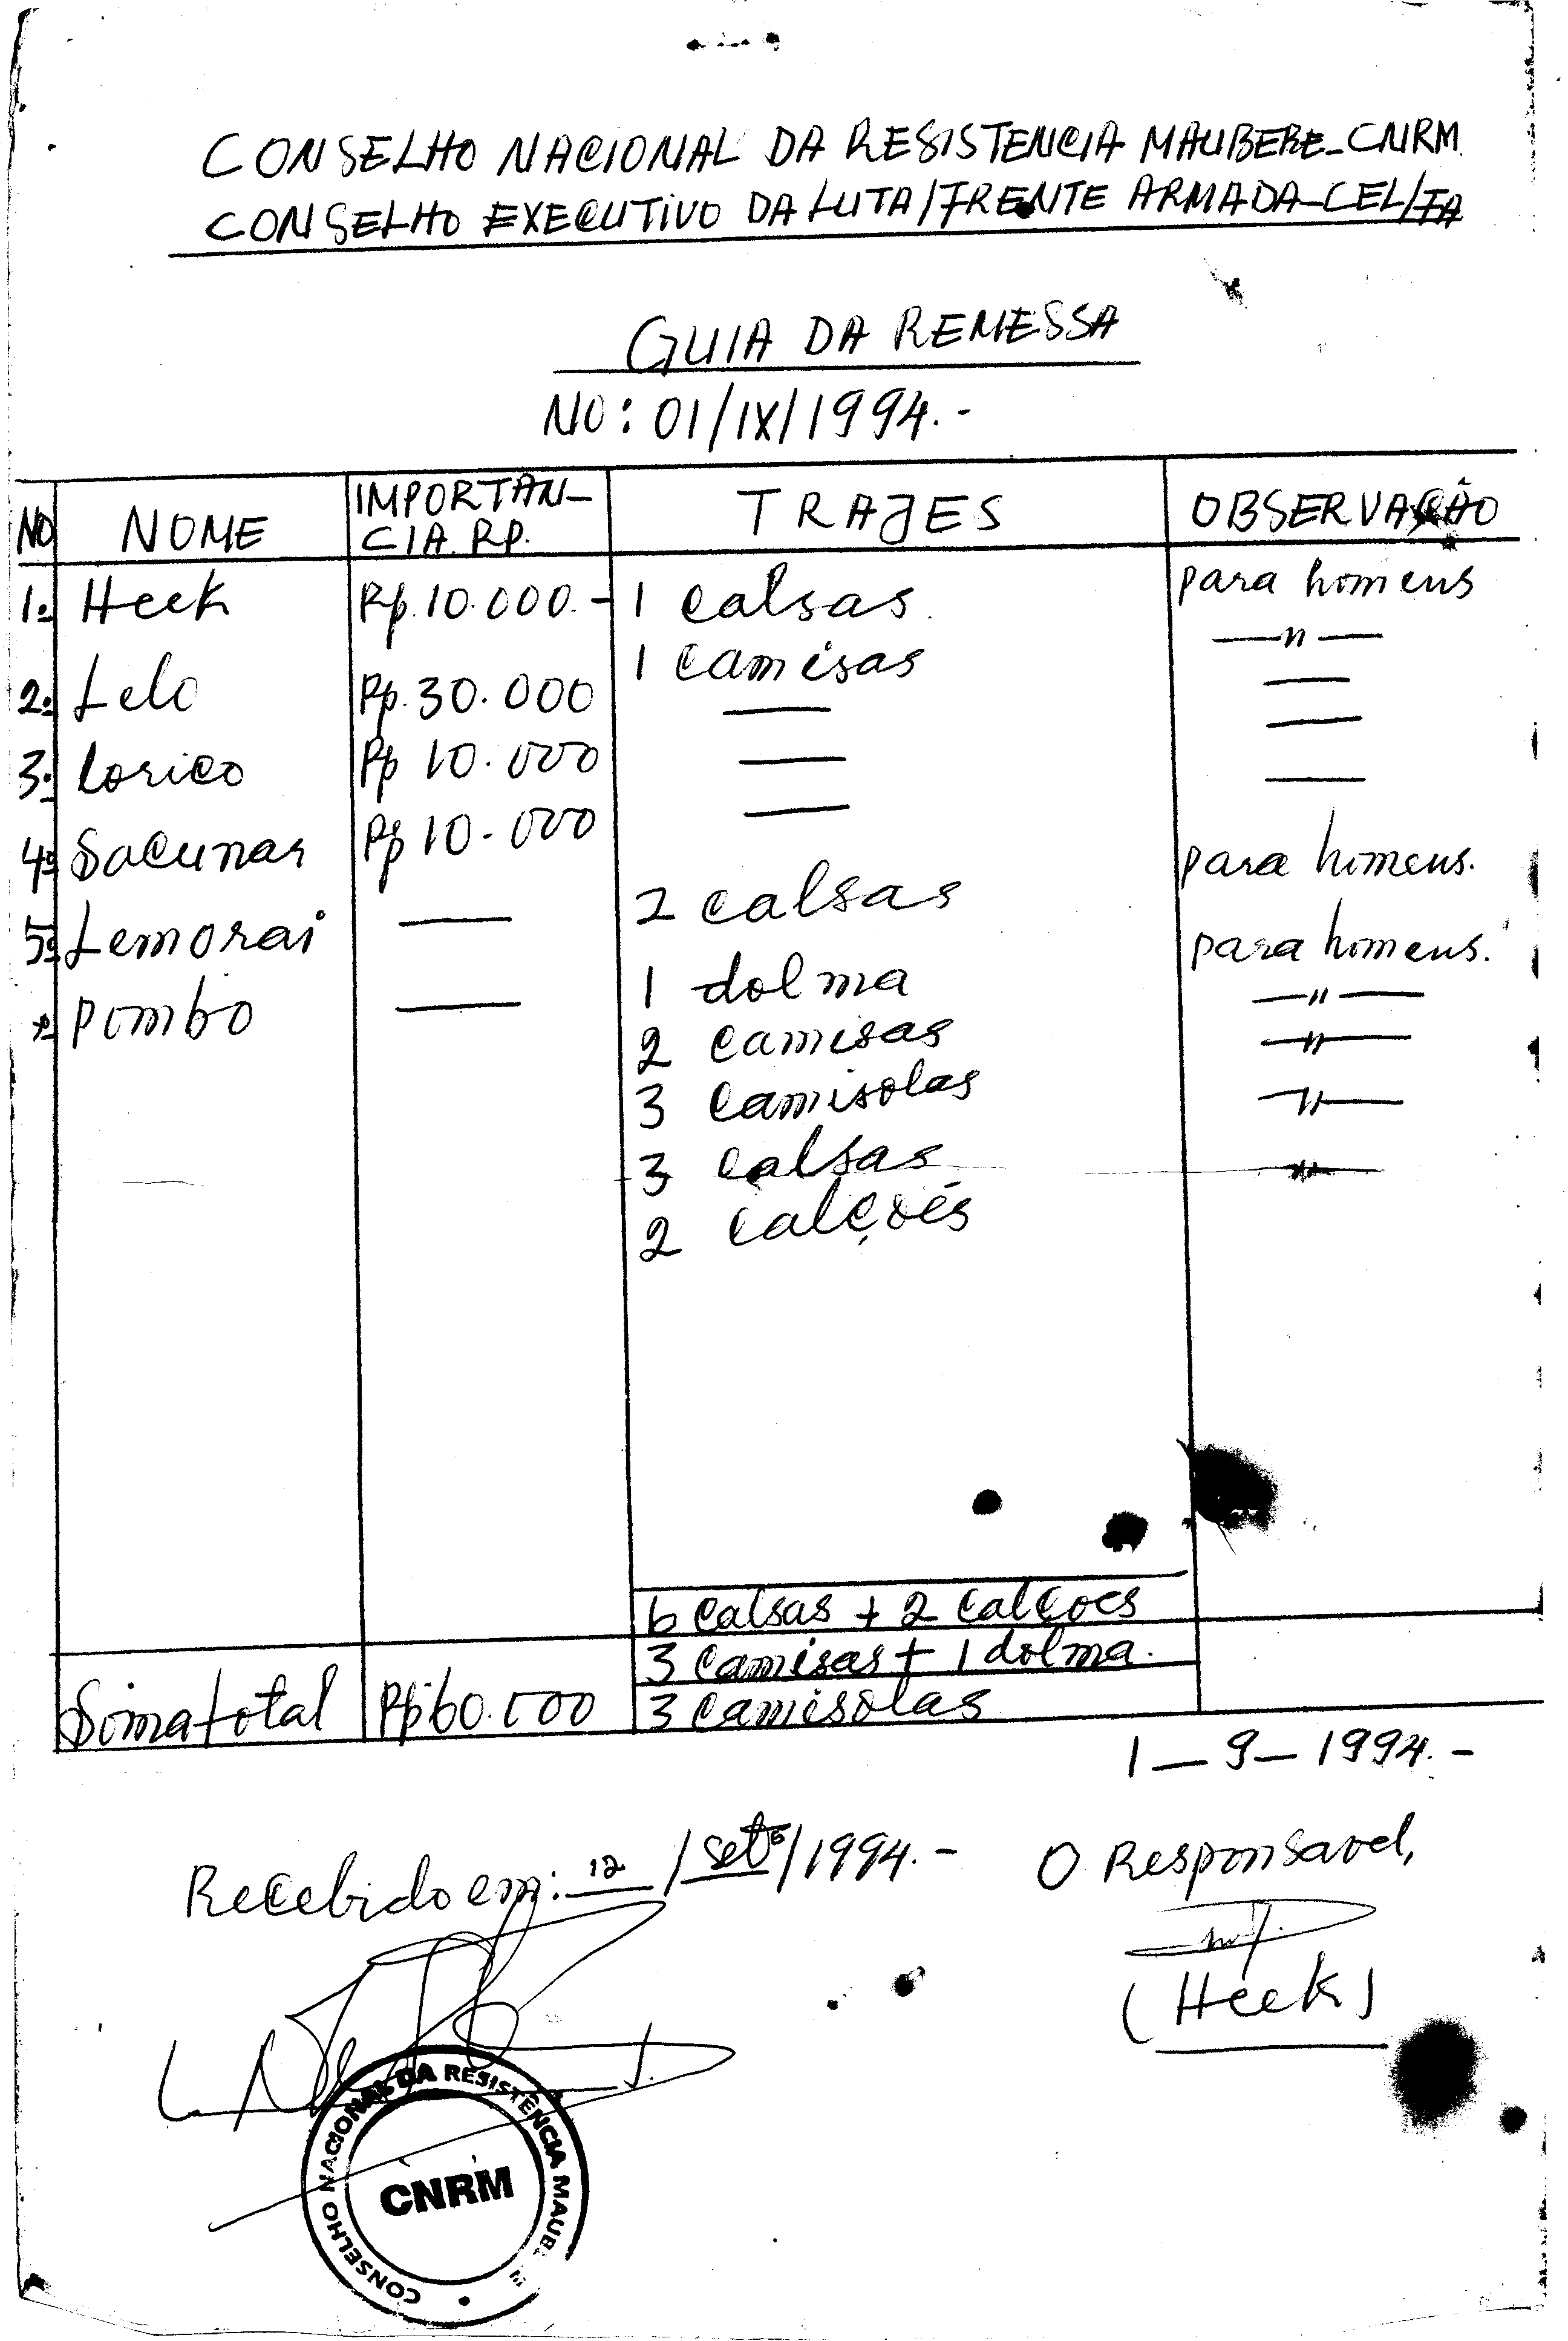 CONSELHO NACIONAL DA RESISTENCIA MAUBERE-CNRM
CONSELHO EXECUTIVO DA LUTA/FRENTE ARMADA-CEL/FA
GUIA DA REMESSA
NO: 01/IX/1994.-
NO NOME IMPORTAN-CIA RP. TRAJES OBSERVAÇÃO
1º Heek Rp. 10.000.- 1 calsas. para homens
1 camisas —"—
2º Lelo Rp. 30.000 — —
3º Lorico Rp 10.000 — —
4º Sacunar Rp 10.000 — —
5º Lemorai — 2 calsas para homens.
Pombo — 1 dolma para homens.
2 camisas —"—
3 camisolas —"—
3 calsas —"—
2 calções —"—
6 calsas + 2 calçoes
3 camisas + 1 dolma.
Soma total Rp 60.000 3 camisolas
1-9-1994.-
Recebido em: 12/setº/1994.-
O Responsavel,
(Heek)
CONSELHO NACIONAL DA RESISTÊNCIA MAUBERE
CNRM